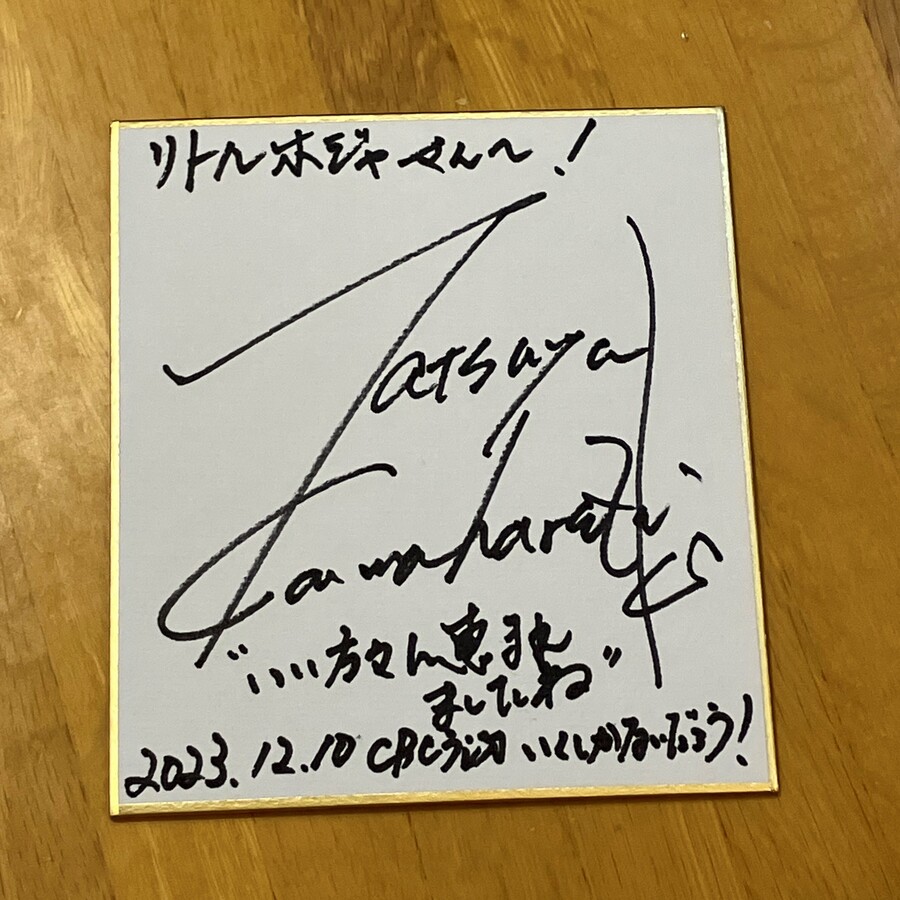 リトルホジャーさんへ!
Tatsuya
Kawahara
"いい方々に恵まれ
ましたね"
2023.12.10 CBCラジオ いくしかないだろう!